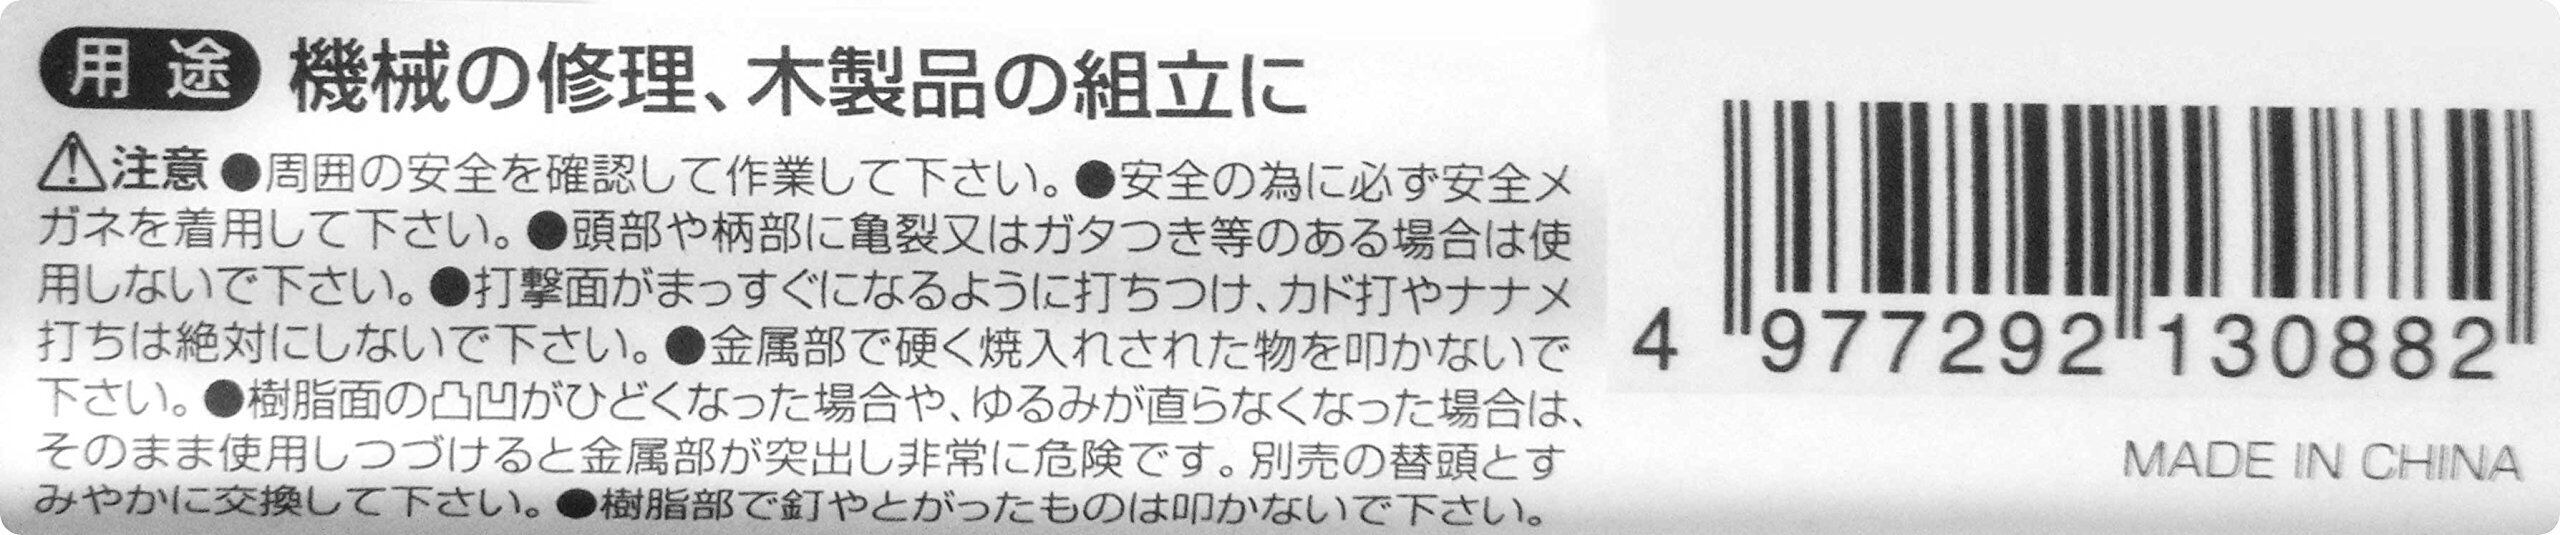 用途 機械の修理、木製品の組立に
⚠注意 ●周囲の安全を確認して作業して下さい。●安全の為に必ず安全メ
ガネを着用して下さい。●頭部や柄部に亀裂又はガタつき等のある場合は使
用しないで下さい。●打撃面がまっすぐになるように打ちつけ、カド打やナナメ
打ちは絶対にしないで下さい。●金属部で硬く焼入れされた物を叩かないで
下さい。●樹脂面の凸凹がひどくなった場合や、ゆるみが直らなくなった場合は、
そのまま使用しつづけると金属部が突出し非常に危険です。別売の替頭とす
みやかに交換して下さい。●樹脂部で釘やとがったものは叩かないで下さい。
4 977292 130882
MADE IN CHINA